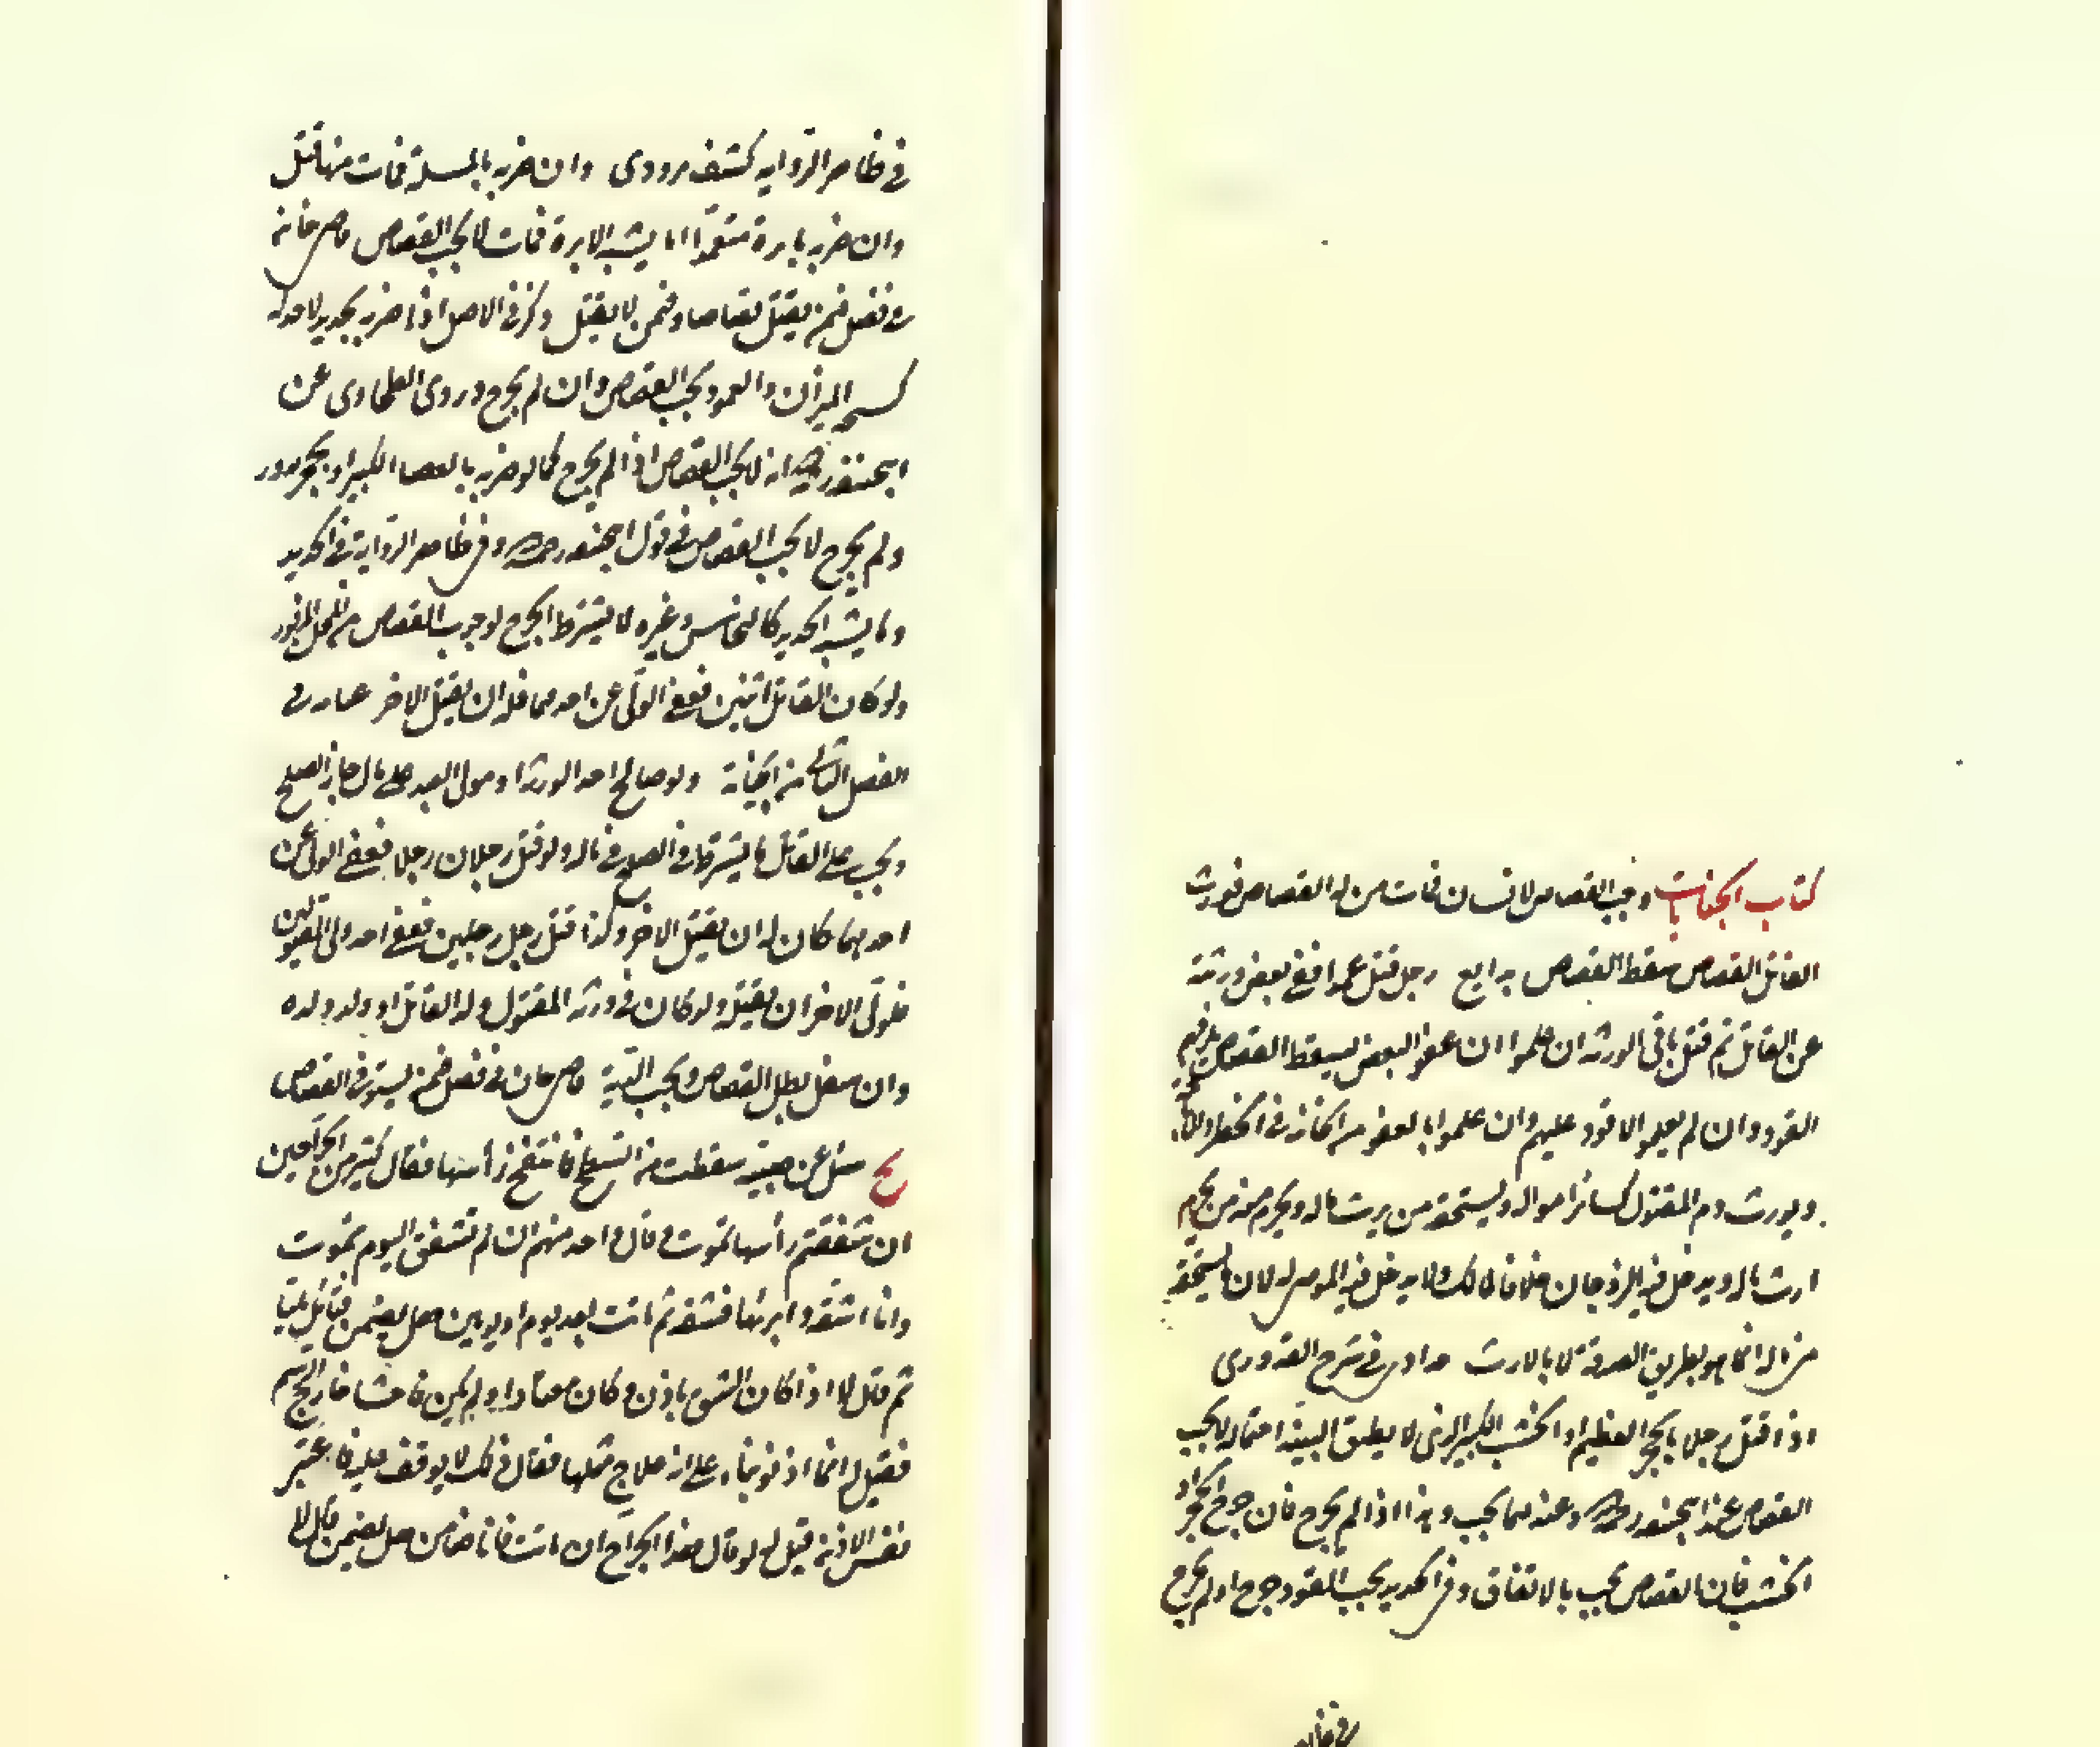 كتاب الجنايات وجب القصاص لانسان فمات من له القصاص فورث
القاتل القصاص سقط القصاص بدايع رجل قتل عمدا فعفى بعض ورثته
عن القاتل ثم قتل باقى الورثة ان علموا ان عفو البعض يسقط القصاص يلزمهم
القود وان لم يعلموا لا قود عليهم وان علموا بالعفو من الخانية فى الحظر والاباحة
ويورث دم المقتول كسائر امواله ويستحقه من يرث ماله ويحرم منه من يحرم
ارث ماله ويدخل فيه الزوجان خلافا لمالك ولا يدخل فيه الموصى له لان يستحقه
من ماله انما هو بطريق الصدقة لا بالارث حدادى فى شرح القدورى
اذا قتل رجلا بالحجر العظيم او الخشب الكبير الذى لا يطيق البينة احتماله لا يجب
القصاص عند ابى حنيفة رحمه الله وعندهما يجب وهذا اذا لم يجرح فان جرح الحجر او
الخشب فان القصاص يجب بالاتفاق وفى الحديد يجب القود جرح او لم يجرح
فى ظاهر الرواية كشف مرودى وان ضربه بالمسلة فمات منها قتل
وان ضربه بابرة متعمدا او ما يشبه الابرة فمات لا يجب القصاص قاضى خان
فى فصل فيمن يقتل قصاصا وفيمن لا يقتل وذكر فى الاصل اذا ضربه بحديد لا حد له
كسنجة الميزان والعمود يجب القصاص وان لم يجرح وروى الطحاوى عن
ابى حنيفة رحمه الله انه لا يجب القصاص اذا لم يجرح كما لو ضربه بالعصا الكبير او بحجر مدور
ولم يجرح لا يجب القصاص فى قول ابى حنيفة رحمه الله وفى ظاهر الرواية فى الحديد
وما يشبه الحديد كالنحاس وغيره لا يشترط الجرح لوجوب القصاص من المحل المزبور
ولو كان القاتل اثنين فعفى الولى عن احدهما فله ان يقتل الاخر عمادى فى
الفصل الثانى من الجناية ولو صالح احد الورثة او مولى العبد على مال جاز الصلح
ويجب على القاتل ما يشترط فى الصلح فى ماله ولو قتل رجلان رجلا فعفى الولى عن
احدهما كان له ان يقتل الاخر وكذا قتل رجل رجلين فعفى احد ولى المقتولين
فلولى الاخر ان يقتله ولو كان فى ورثة المقتول ولد القاتل او ولد ولده
وان سفل بطل القصاص ويجب الدية قاضى خان فى فصل فيمن يستوفى القصاص
سئل عن صبية سقطت من السطح فانتفخ رأسها فقال كثير من الجراحين
ان شققتم رأسها تموت وقال واحد منهم ان لم تشقق اليوم تموت
وانا اشقه وابرئها فشقه ثم ماتت بعد يوم او يومين هل يضمن فتأمل مليا
ثم قال لا اذا كان الشق باذن وكان معتادا ولم يكن فاحشا خارج الرسم
فقيل له انما اذنوا بناء على انه علاج مثلها فقال ذلك لا يوقف عليه فاعتبر
نفس الاذن قيل له لو قال هذا الجراح ان ماتت فانا ضامن هل يضمن قال لا